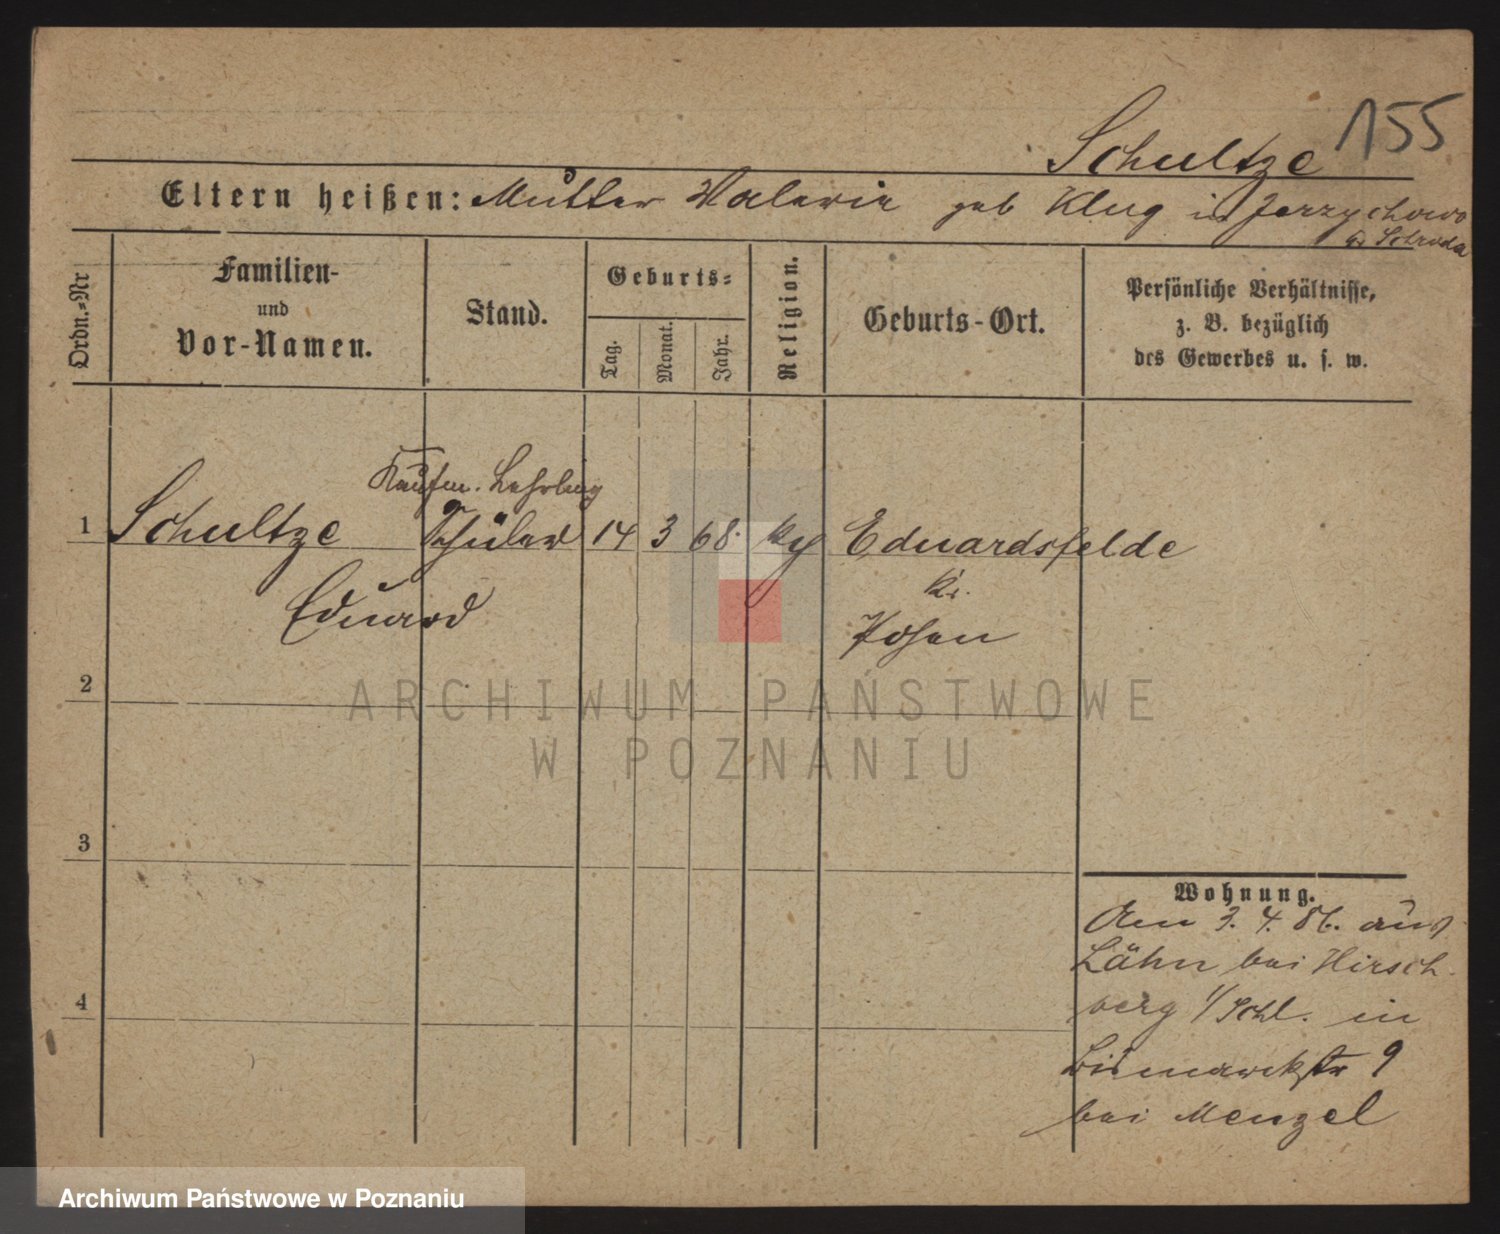 Schultze 155
Eltern heißen: Mutter Valeria geb Klug in Jerzychowo
Kr Schroda
Ordn.-Nr
Familien-
und
Vor-Namen.
Stand.
Geburts-
Tag.
Monat.
Jahr.
Religion.
Geburts-Ort.
Persönliche Verhältnisse,
z. B. bezüglich
des Gewerbes u. s. w.
Kaufm. Lehrling
1 Schultze Schüler 14 3 68. Eduardsfelde
Eduard Kr.
Posen
2
ARCHIWUM PAŃSTWOWE
W POZNANIU
3
Wohnung.
Am 3. 4. 86. aus
Lähn bei Hirsch-
berg i/Schl. in
4
Bismarckstr 9
bei Menzel
Archiwum Państwowe w Poznaniu